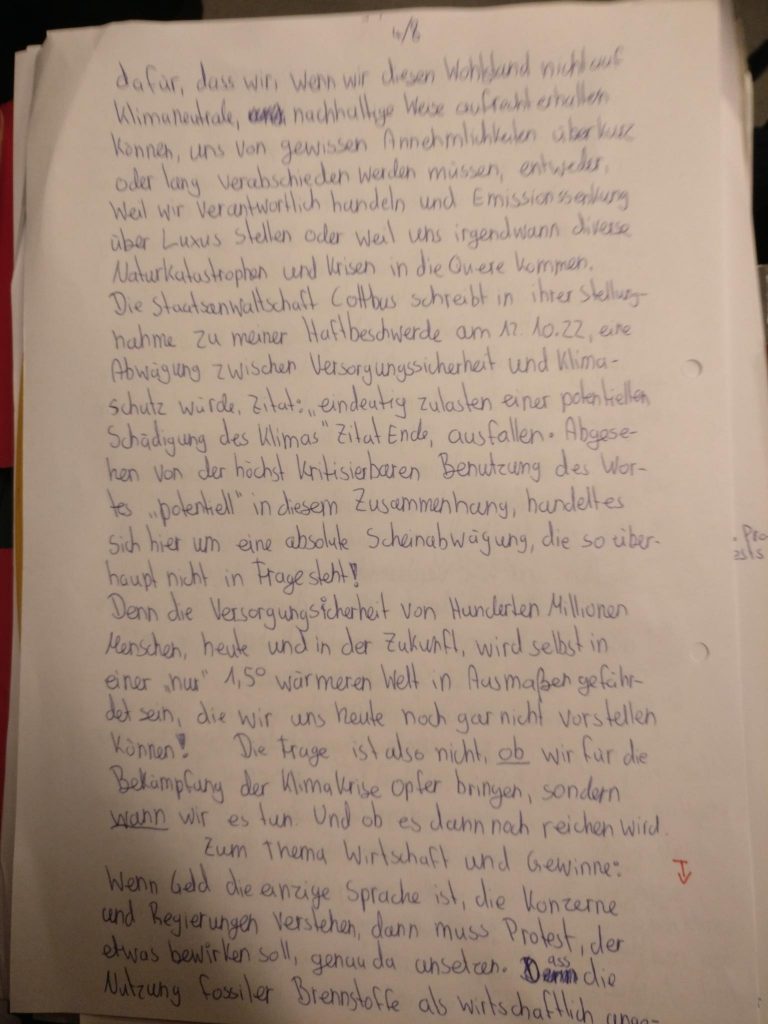 4/8
dafür, dass wir, wenn wir diesen Wohlstand nicht auf
Klimaneutrale, nachhaltige Weise aufrecht erhalten
können, uns von gewissen Annehmlichkeiten über kurz
oder lang verabschieden werden müssen, entweder,
weil wir verantwortlich handeln und Emissionssenkung
über Luxus stellen oder weil uns irgendwann diverse
Naturkatastrophen und Krisen in die Quere kommen.
Die Staatsanwaltschaft Cottbus schreibt in ihrer Stellung-
nahme zu meiner Haftbeschwerde am 17.10.22, eine
Abwägung zwischen Versorgungssicherheit und Klima-
schutz würde, Zitat: „eindeutig zulasten einer potentiellen
Schädigung des Klimas" Zitat Ende, ausfallen. Abgese-
hen von der höchst kritisierbaren Benutzung des Wor-
tes „potentiell" in diesem Zusammenhang, handelt es
sich hier um eine absolute Scheinabwägung, die so über-
haupt nicht in Frage steht!
Denn die Versorgungsicherheit von Hunderten Millionen
Menschen, heute und in der Zukunft, wird selbst in
einer „nur" 1,5° wärmeren Welt in Ausmaßen gefähr-
det sein, die wir uns heute noch gar nicht vorstellen
können! Die Frage ist also nicht, ob wir für die
Bekämpfung der Klimakrise opfer bringen, sondern
wann wir es tun. Und ob es dann noch reichen wird.
Zum Thema Wirtschaft und Gewinne:
Wenn Geld die einzige Sprache ist, die Konzerne
und Regierungen verstehen, dann muss Protest, der
etwas bewirken soll, genau da ansetzen. Dass die
Nutzung fossiler Brennstoffe als wirtschaftlich ange-